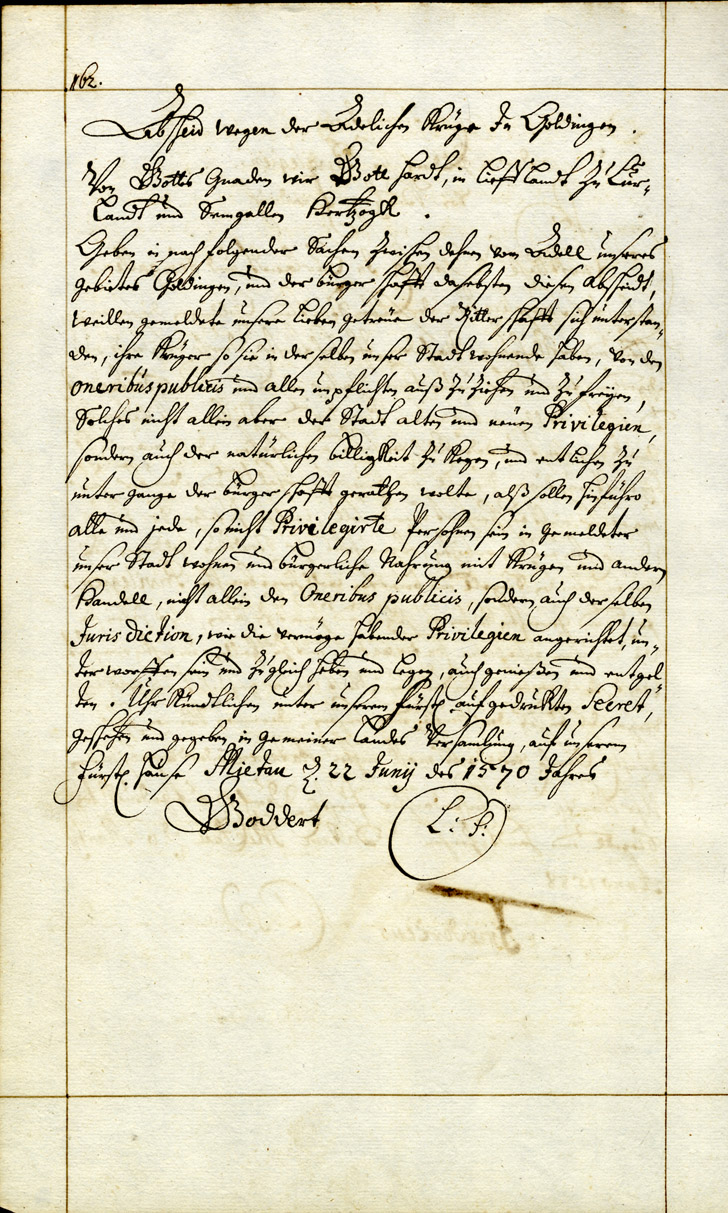 162.
Abscheid wegen der Adelichen Krüge In Goldingen.
Von Gottes Gnaden wir Gott hardt, in Liefflandt zu Cur-
landt und Semgallen Hertzogk.
Geben in nach folgender Sachen zwischen dehnen vom Adell unseres
gebietes Goldingen, und der bürgerschafft dasebsten diesen Abscheidt,
weillen gemeldete unsere lieben getreüe der Ritterschafft sich unterstan-
den, ihre Krüger so sie in derselben unser Stadt wohnende haben, von den
oneribus publicis und allen unpflichten auß zu ziehen und zu freyen,
Solches nicht allein aber der Stadt alten und neuen Privilegien,
sondern auch der natürlichen billigkeit zu kegen, und entlichen zu
untergange der bürgerschafft gerathen wolte, alß sollen hinführo
alle und jede, so nicht Privilegirte Persohnen sein in gemeldeter
unser Stadt wohnen und bürgerliche Nahrung mit Krügen und andern
Handell, nicht allein den Oneribus publicis, sondern auch derselben
Jurisdiction, wie die vermöge habender Privilegien angerichtet, un-
terworffen sein und zugleich heben und legen, auch genießen und entgel-
ten. Uhrkündtlichen unter unserem fürstl. aufgedrukten Secret,
geschehen und gegeben in gemeiner Landes Versamlung, auf unserem
fürstl. Hause Mietau d. 22 Junij des 1570 Jahres
Goddert L: S: